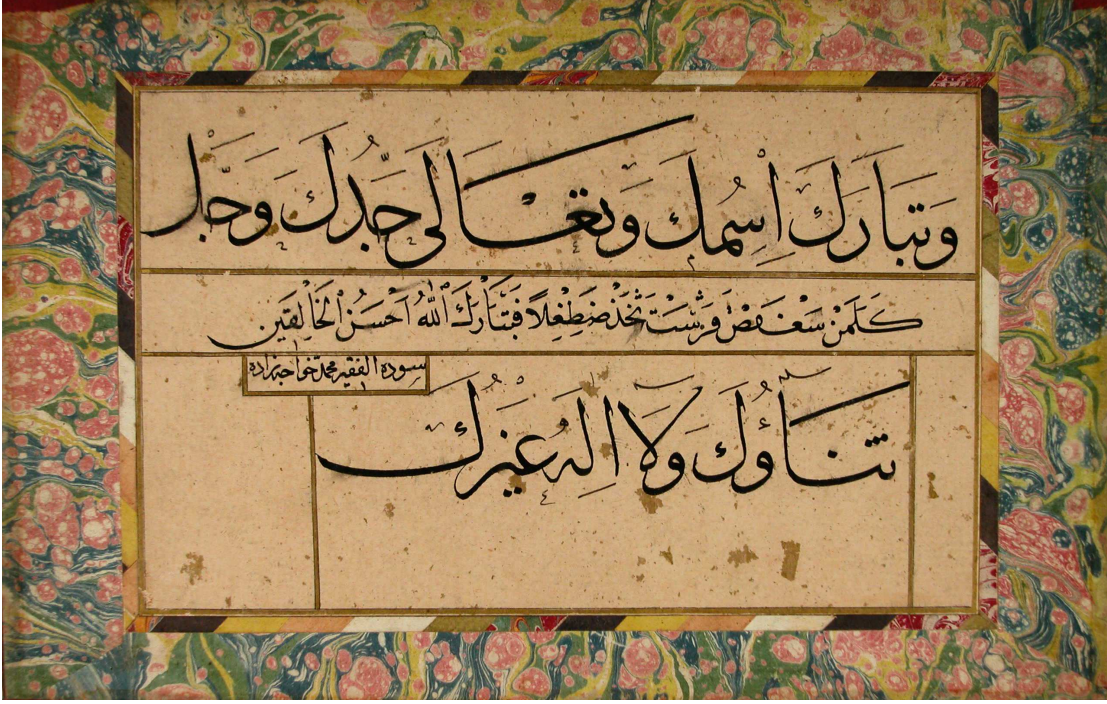 وَتَبَارَكَ اِسْمُكَ وَتَعَالَى جَدُّكَ وَجَلَّ
كَلَمَنْ سَعْفَصْ قَرَشَتْ ثَخَذْ ضَظِغْلًا فَتَبَارَكَ اللّٰهُ اَحْسَنُ الْخَالِقِينَ
سوده الفقير محمد خواجه زاده
ثَنَاؤُكَ وَلَا اِلٰهَ غَيْرُكَ